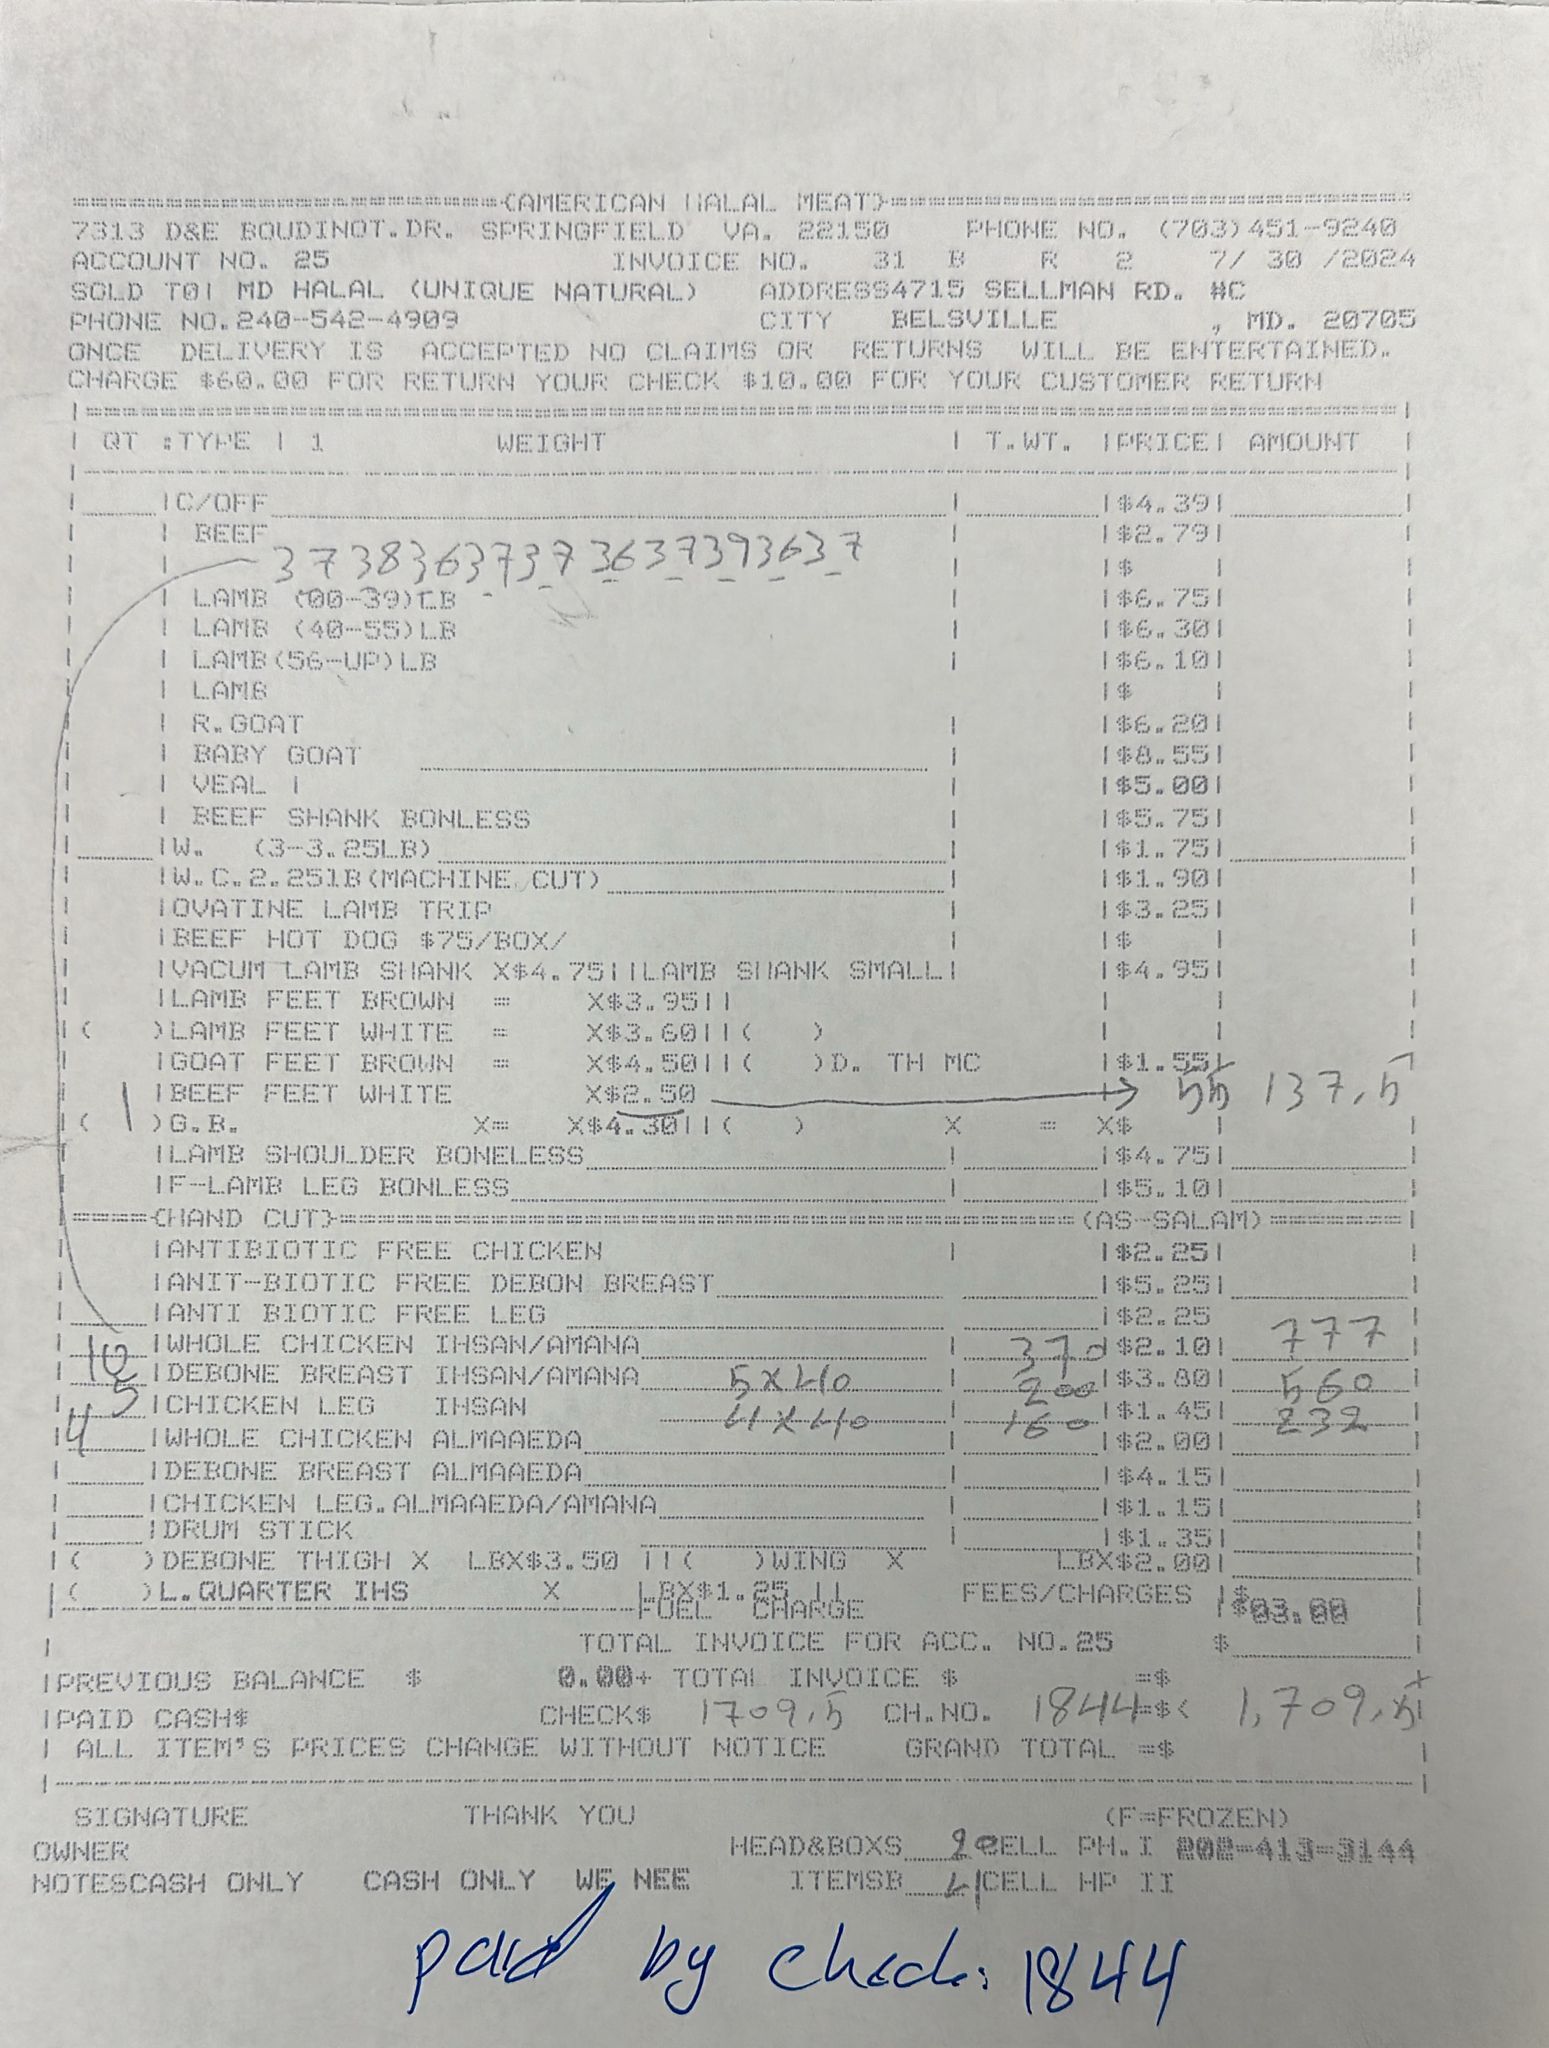 {AMERICAN HALAL MEAT}
7313 D&E BOUDINOT.DR. SPRINGFIELD VA. 22150 PHONE NO. (703)451-9240
ACCOUNT NO. 25 INVOICE NO. 31 B R 2 7/ 30 /2024
SOLD TO| MD HALAL (UNIQUE NATURAL) ADDRESS4715 SELLMAN RD. #C
PHONE NO.240-542-4909 CITY BELSVILLE , MD. 20705
ONCE DELIVERY IS ACCEPTED NO CLAIMS OR RETURNS WILL BE ENTERTAINED.
CHARGE $60.00 FOR RETURN YOUR CHECK $10.00 FOR YOUR CUSTOMER RETURN
QT :TYPE | 1 WEIGHT | T.WT. |PRICE| AMOUNT
|C/OFF |$4.39|
| BEEF |$2.79|
37 38 36 37 37 36 37 39 36 37 |$ |
| LAMB (00-39)LB |$6.75|
| LAMB (40-55)LB |$6.30|
| LAMB(56-UP)LB |$6.10|
| LAMB |$ |
| R.GOAT |$6.20|
| BABY GOAT |$8.55|
| VEAL | |$5.00|
| BEEF SHANK BONLESS |$5.75|
|W. (3-3.25LB) |$1.75|
|W.C.2.25lB(MACHINE CUT) |$1.90|
|OVATINE LAMB TRIP |$3.25|
|BEEF HOT DOG $75/BOX/ |$ |
|VACUM LAMB SHANK X$4.75||LAMB SHANK SMALL| |$4.95|
|LAMB FEET BROWN = X$3.95||
( )LAMB FEET WHITE = X$3.60||( )
|GOAT FEET BROWN = X$4.50||( )D. TH MC |$1.55|
|BEEF FEET WHITE X$2.50 55 137,5
( 1 )G.B. X= X$4.30||( ) X = X$
|LAMB SHOULDER BONELESS |$4.75|
|F-LAMB LEG BONLESS |$5.10|
{HAND CUT} (AS-SALAM)
|ANTIBIOTIC FREE CHICKEN |$2.25|
|ANIT-BIOTIC FREE DEBON BREAST |$5.25|
|ANTI BIOTIC FREE LEG |$2.25
10 |WHOLE CHICKEN IHSAN/AMANA 370 |$2.10| 777
5 |DEBONE BREAST IHSAN/AMANA 5x40 200 |$3.80| 560
4 |CHICKEN LEG IHSAN 4x40 160 |$1.45| 232
|WHOLE CHICKEN ALMAAEDA |$2.00|
|DEBONE BREAST ALMAAEDA |$4.15|
|CHICKEN LEG.ALMAAEDA/AMANA |$1.15|
|DRUM STICK |$1.35|
( )DEBONE THIGH X LBX$3.50 ||( )WING X LBX$2.00|
( )L.QUARTER IHS X LBX$1.25 || FEES/CHARGES |$
FUEL CHARGE |$03.00
TOTAL INVOICE FOR ACC. NO.25 $
|PREVIOUS BALANCE $ 0.00+ TOTAL INVOICE $ =$
|PAID CASH$ CHECK$ 1709,5 CH.NO. 1844 =$< 1,709,5
| ALL ITEM'S PRICES CHANGE WITHOUT NOTICE GRAND TOTAL =$
SIGNATURE THANK YOU (F=FROZEN)
OWNER HEAD&BOXS CELL PH.I 202-413-3144
NOTESCASH ONLY CASH ONLY WE NEE ITEMSB 4 CELL HP II
paid by check: 1844